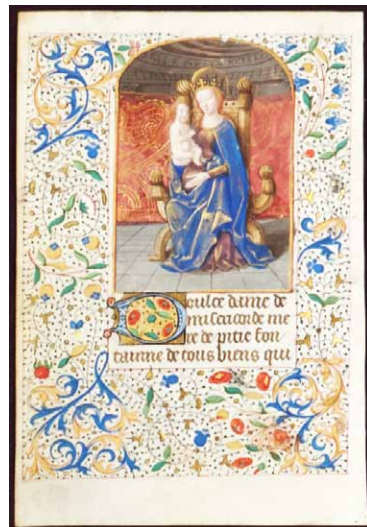 Doulce dame de
misericorde me
re de pitie fon
tainne de tous biens qui